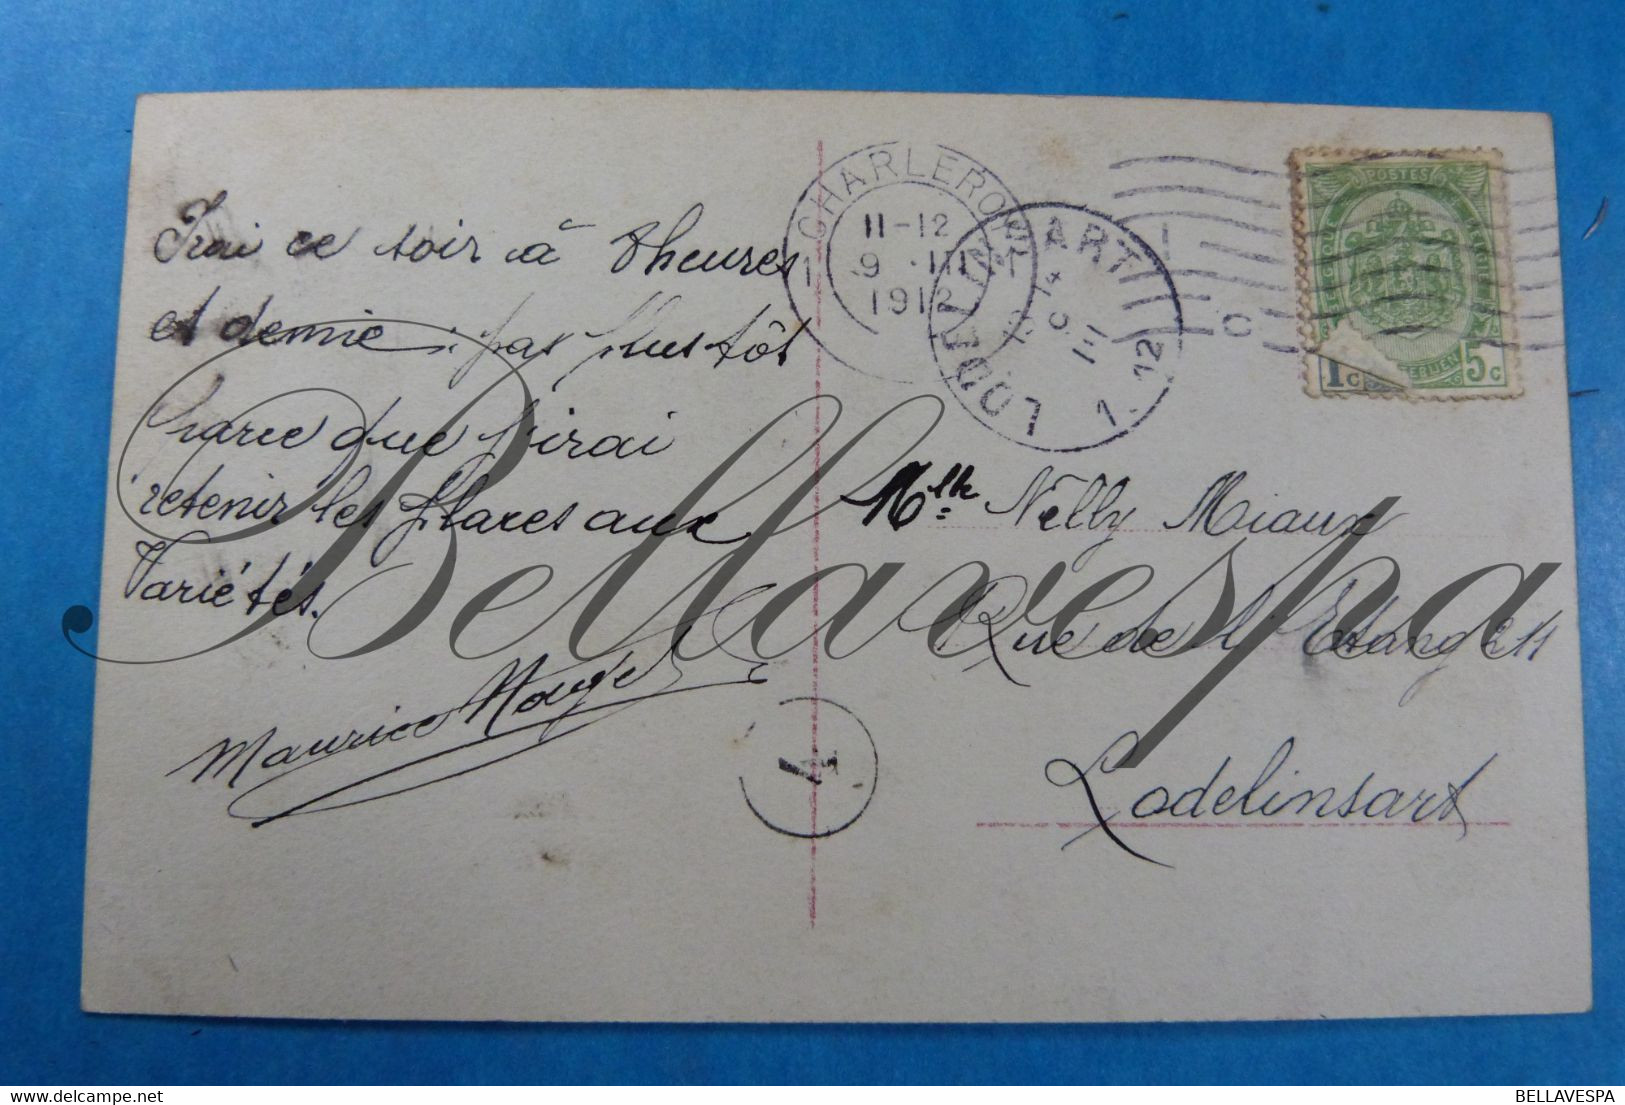 Irai ce soir à 8 heures
et demie, pas plus tôt
parce que j'irai
retenir les places aux
Variétés.
Maurice
CHARLEROY
1 11-12 1
9 III
1912
LODELINSART
14
9 III
12
1
POSTES
1c 5c
Mlle Nelly Miaux
Rue de l'Etang
Lodelinsart
4
Bellavespa
BELLAVESPA